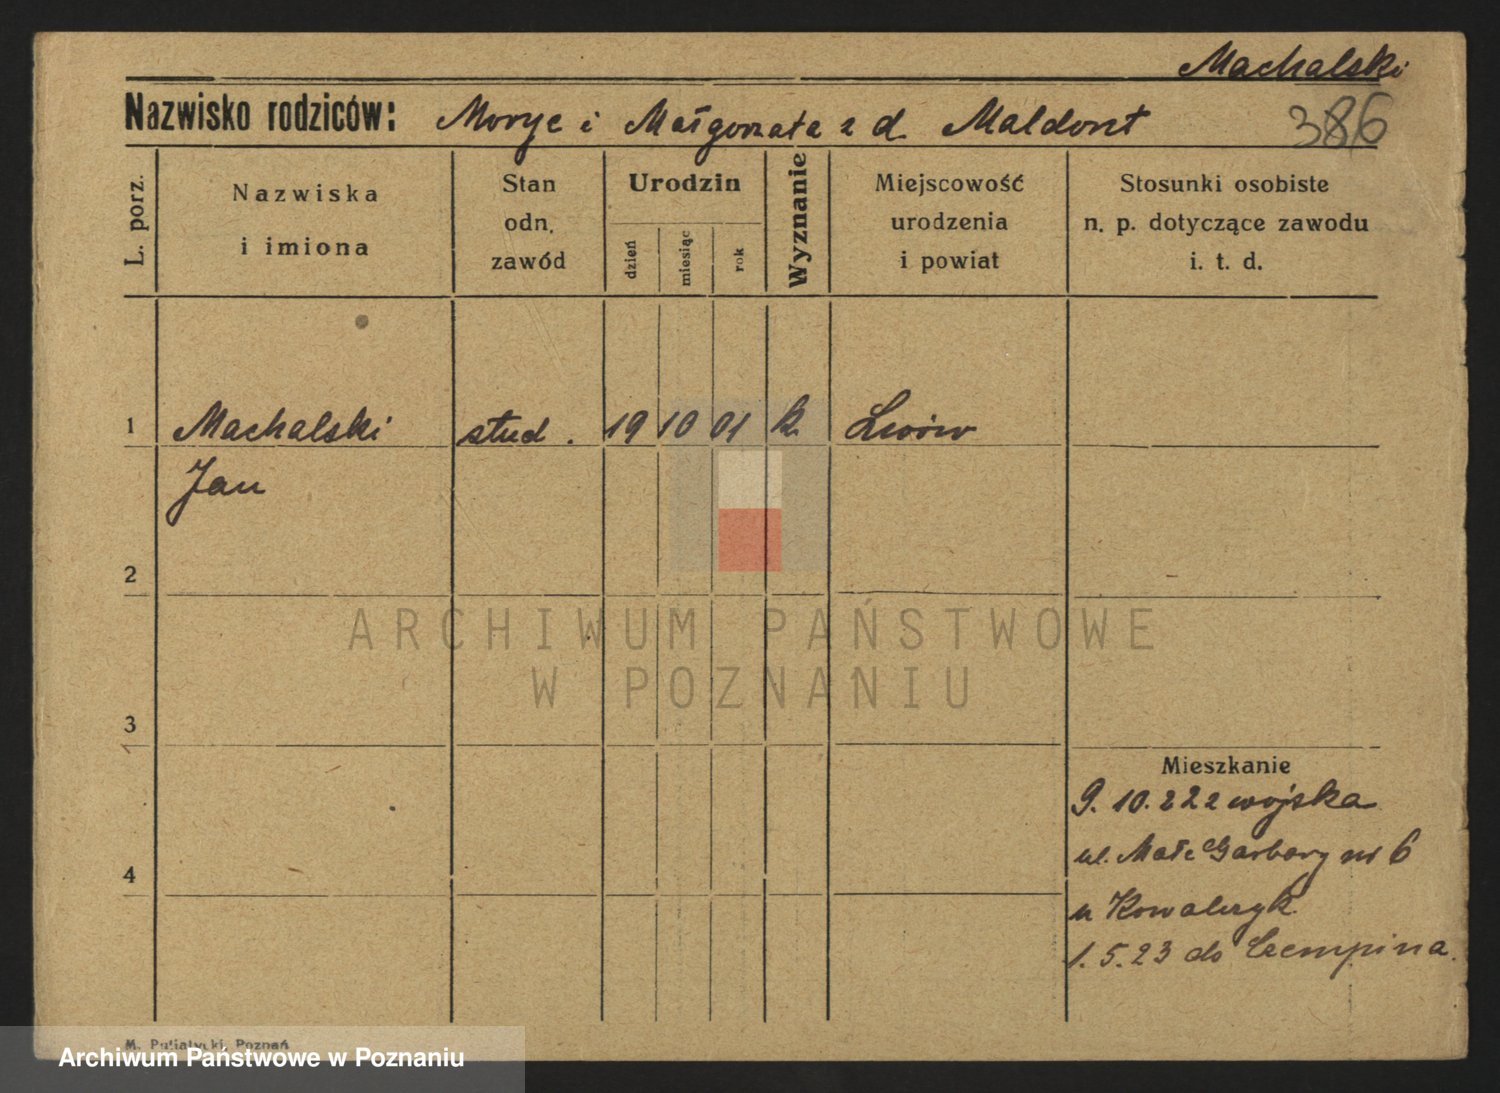 Machalski
Nazwisko rodziców: Moryc i Małgorzata z d. Maldont
386
L. porz.
Nazwiska
i imiona
Stan
odn.
zawód
Urodzin
dzień
miesiąc
rok
Wyznanie
Miejscowość
urodzenia
i powiat
Stosunki osobiste
n. p. dotyczące zawodu
i. t. d.
1 Machalski stud. 19 10 01 k. Lwów
Jan
2
ARCHIWUM PAŃSTWOWE
W POZNANIU
3
Mieszkanie
9. 10. 22 z wojska
ul. Małe Garbary nr 6
4
u Kowalczyk.
1. 5. 23 do Czempina.
M. Putiatycki, Poznań
Archiwum Państwowe w Poznaniu